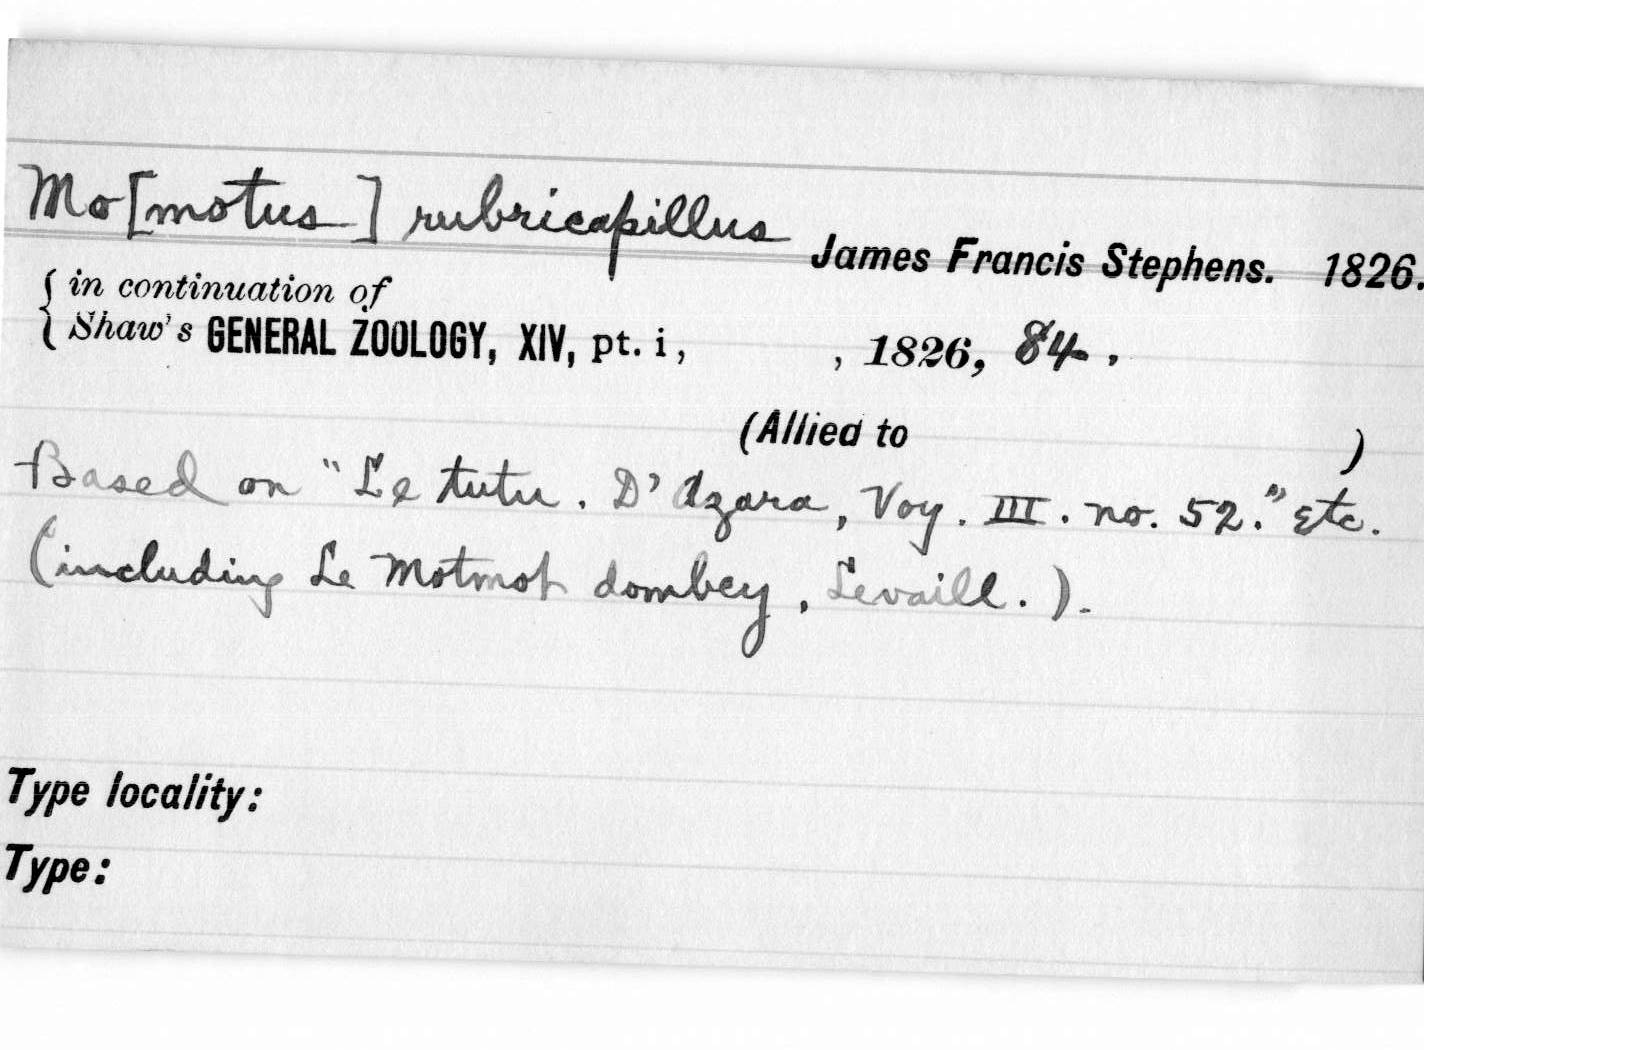 Mo[motus] rubricapillus James Francis Stephens. 1826.
{ in continuation of
Shaw's GENERAL ZOOLOGY, XIV, pt. i, , 1826, 84.,
(Allied to )
Based on "Le tutu. D'Azara, Voy. III. no. 52." etc.
(including Le Motmot dombey, Levaill.).
Type locality:
Type: